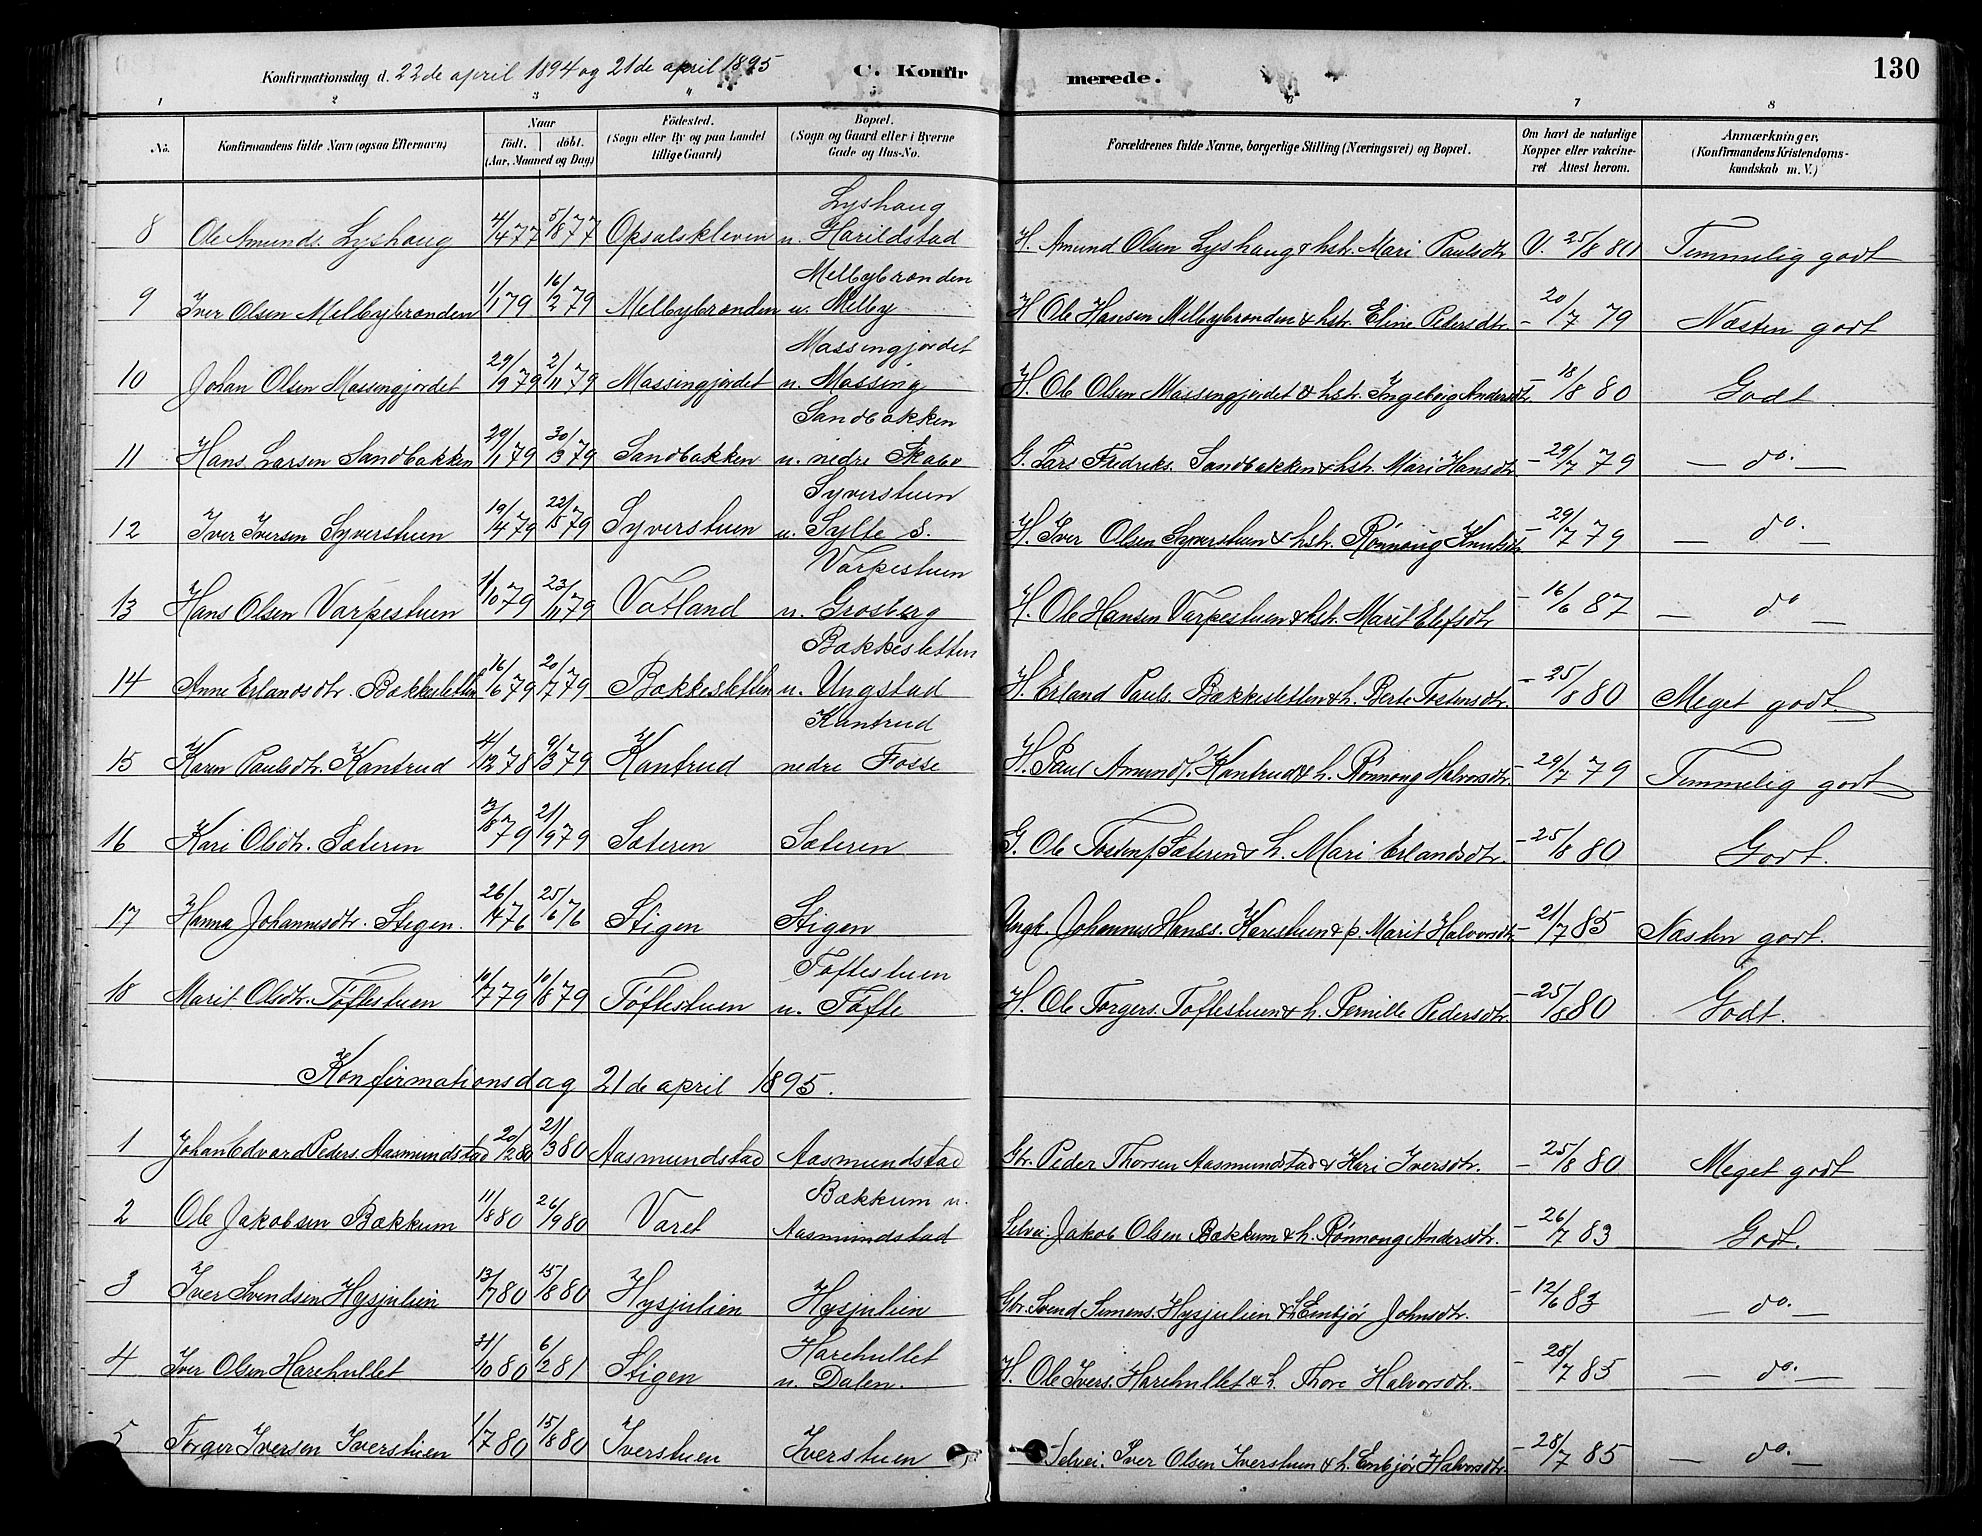 Konfirmationsdag d. 22de april 1894 og 21de april 1895 C. Konfirmerede. 130
1 2 3 4 5 6 7 8
No. Konfirmandens fulde Navn (ogsaa Efternavn) Naar födt. döbt. (Aar, Maaned og Dag) Födested. (Sogn eller By og paa Landet tillige Gaard) Bopæl. (Sogn og Gaard eller i Byerne Gade og Hus-No. Forældrenes fulde Navne, borgerlige Stilling (Næringsvei) og Bopæl. Om havt de naturlige Kopper eller vakcineret Attest herom. Anmærkninger, (Konfirmandens Kristendomskundskab m. V.)
8 Ole Amunds. Lyshaug 4/4 77 5/8 77 Opsalskleven Lyshaug u. Harildstad H. Amund Olsen Lyshaug & hstr. Mari Paulsdtr V. 25/8 80 Temmelig godt
9 Iver Olsen Melbybrænden 1/1 79 16/2 79 Melbybrænden Melbybrænden u. Melby H Ole Hansen Melbybrænden & hstr. Eline Pedersdtr. – 20/7 79 Næsten godt
10 Johan Olsen Massingjordet 29/9 79 2/11 79 Massingjordet Massingjordet u. Massing H. Ole Olsen Massingjordet & hstr. Ingebörg Andersdtr. – 18/8 80 Godt
11 Hans Larsen Sandbakken 29/1 79 30/3 79 Sandbakken Sandbakken u. nedre Skabo G. Lars Fredriks. Sandbakken & hstr. Mari Hansdtr – 29/7 79 – do. –
12 Iver Iversen Syverstuen 19/4 79 22/5 79 Syverstuen Syverstuen u. Sylte s. H. Iver Olsen Syverstuen & hstr. Rønnaug Knutsdtr – 29/7 79 – do. –
13 Hans Olsen Varpestuen 1/10 79 23/11 79 Vatland Varpestuen u. Grosberg H. Ole Hansen Varpestuen & hstr. Marit Elefsdtr – 16/6 87 – do –
14 Anne Erlandsdtr. Bakkesletten 16/6 79 20/7 79 Bakkesletten Bakkesletten u. Ungstad H. Erland Pauls. Bakkesletten & h. Berte Tostensdtr. – 25/8 80 Meget godt.
15 Karen Paulsdtr. Kantrud 4/12 78 9/3 79 Kantrud Kantrud nedre Fosse H. Paul Amunds. Kantrud & h. Rønnong Halvorsdtr. – 29/7 79 Temmelig godt
16 Kari Olsdtr. Sæteren 13/8 79 21/9 79 Sæteren Sæteren G. Ole Tostens. Sæteren & h. Mari Erlandsdtr. – 25/8 80 Godt.
17 Hanna Johannesdtr. Stigen. 26/4 76 25/6 76 Stigen Stigen Ungk. Johannes Hanss. Karistuen & p. Marit Halvorsdtr – 21/7 85 Næsten godt.
18 Marit Olsdtr. Töftestuen 10/7 79 10/8 79 Töftestuen Toftestuen u. Tofte H. Ole Torgers. Toftestuen & h. Pernille Pedersdtr. – 25/8 80 Godt.
Konfirmationsdag 21de april 1895.
1 Johan Edvard Peders. Aasmundstad 20/2 80 21/3 80 Aasmundstad Aasmundstad Gbr. Peder Thorsen Aasmundstad & Kari Iversdtr. – 25/8 80 Meget godt
2 Ole Jakobsen Bækkum 11/8 80 26/9 80 Varet Bækkum u. Aasmundstad Selvei. Jakob Olsen Bækkum & h. Rønnong Andersdtr. – 26/7 83 Godt.
3 Iver Svendsen Hysjulien 13/7 80 15/8 80 Hysjulien Hysjulien Gbr. Svend Simens. Hysjulien & h. Embjør Johnsdtr. – 12/6 83 – do. –
4 Iver Olsen Harehullet 21/10 80 6/2 81 Stigen Harehullet u. Dalen. H. Ole Ivers. Harehullet & h. Thore Halvorsdtr. – 28/7 85 – do. –
5 Torger Iversen Iverstuen 1/7 80 15/8 80 Iverstuen Iverstuen Selvei. Iver Olsen Iverstuen & h. Embjør Halvorsdtr. – 28/7 85 – do. –